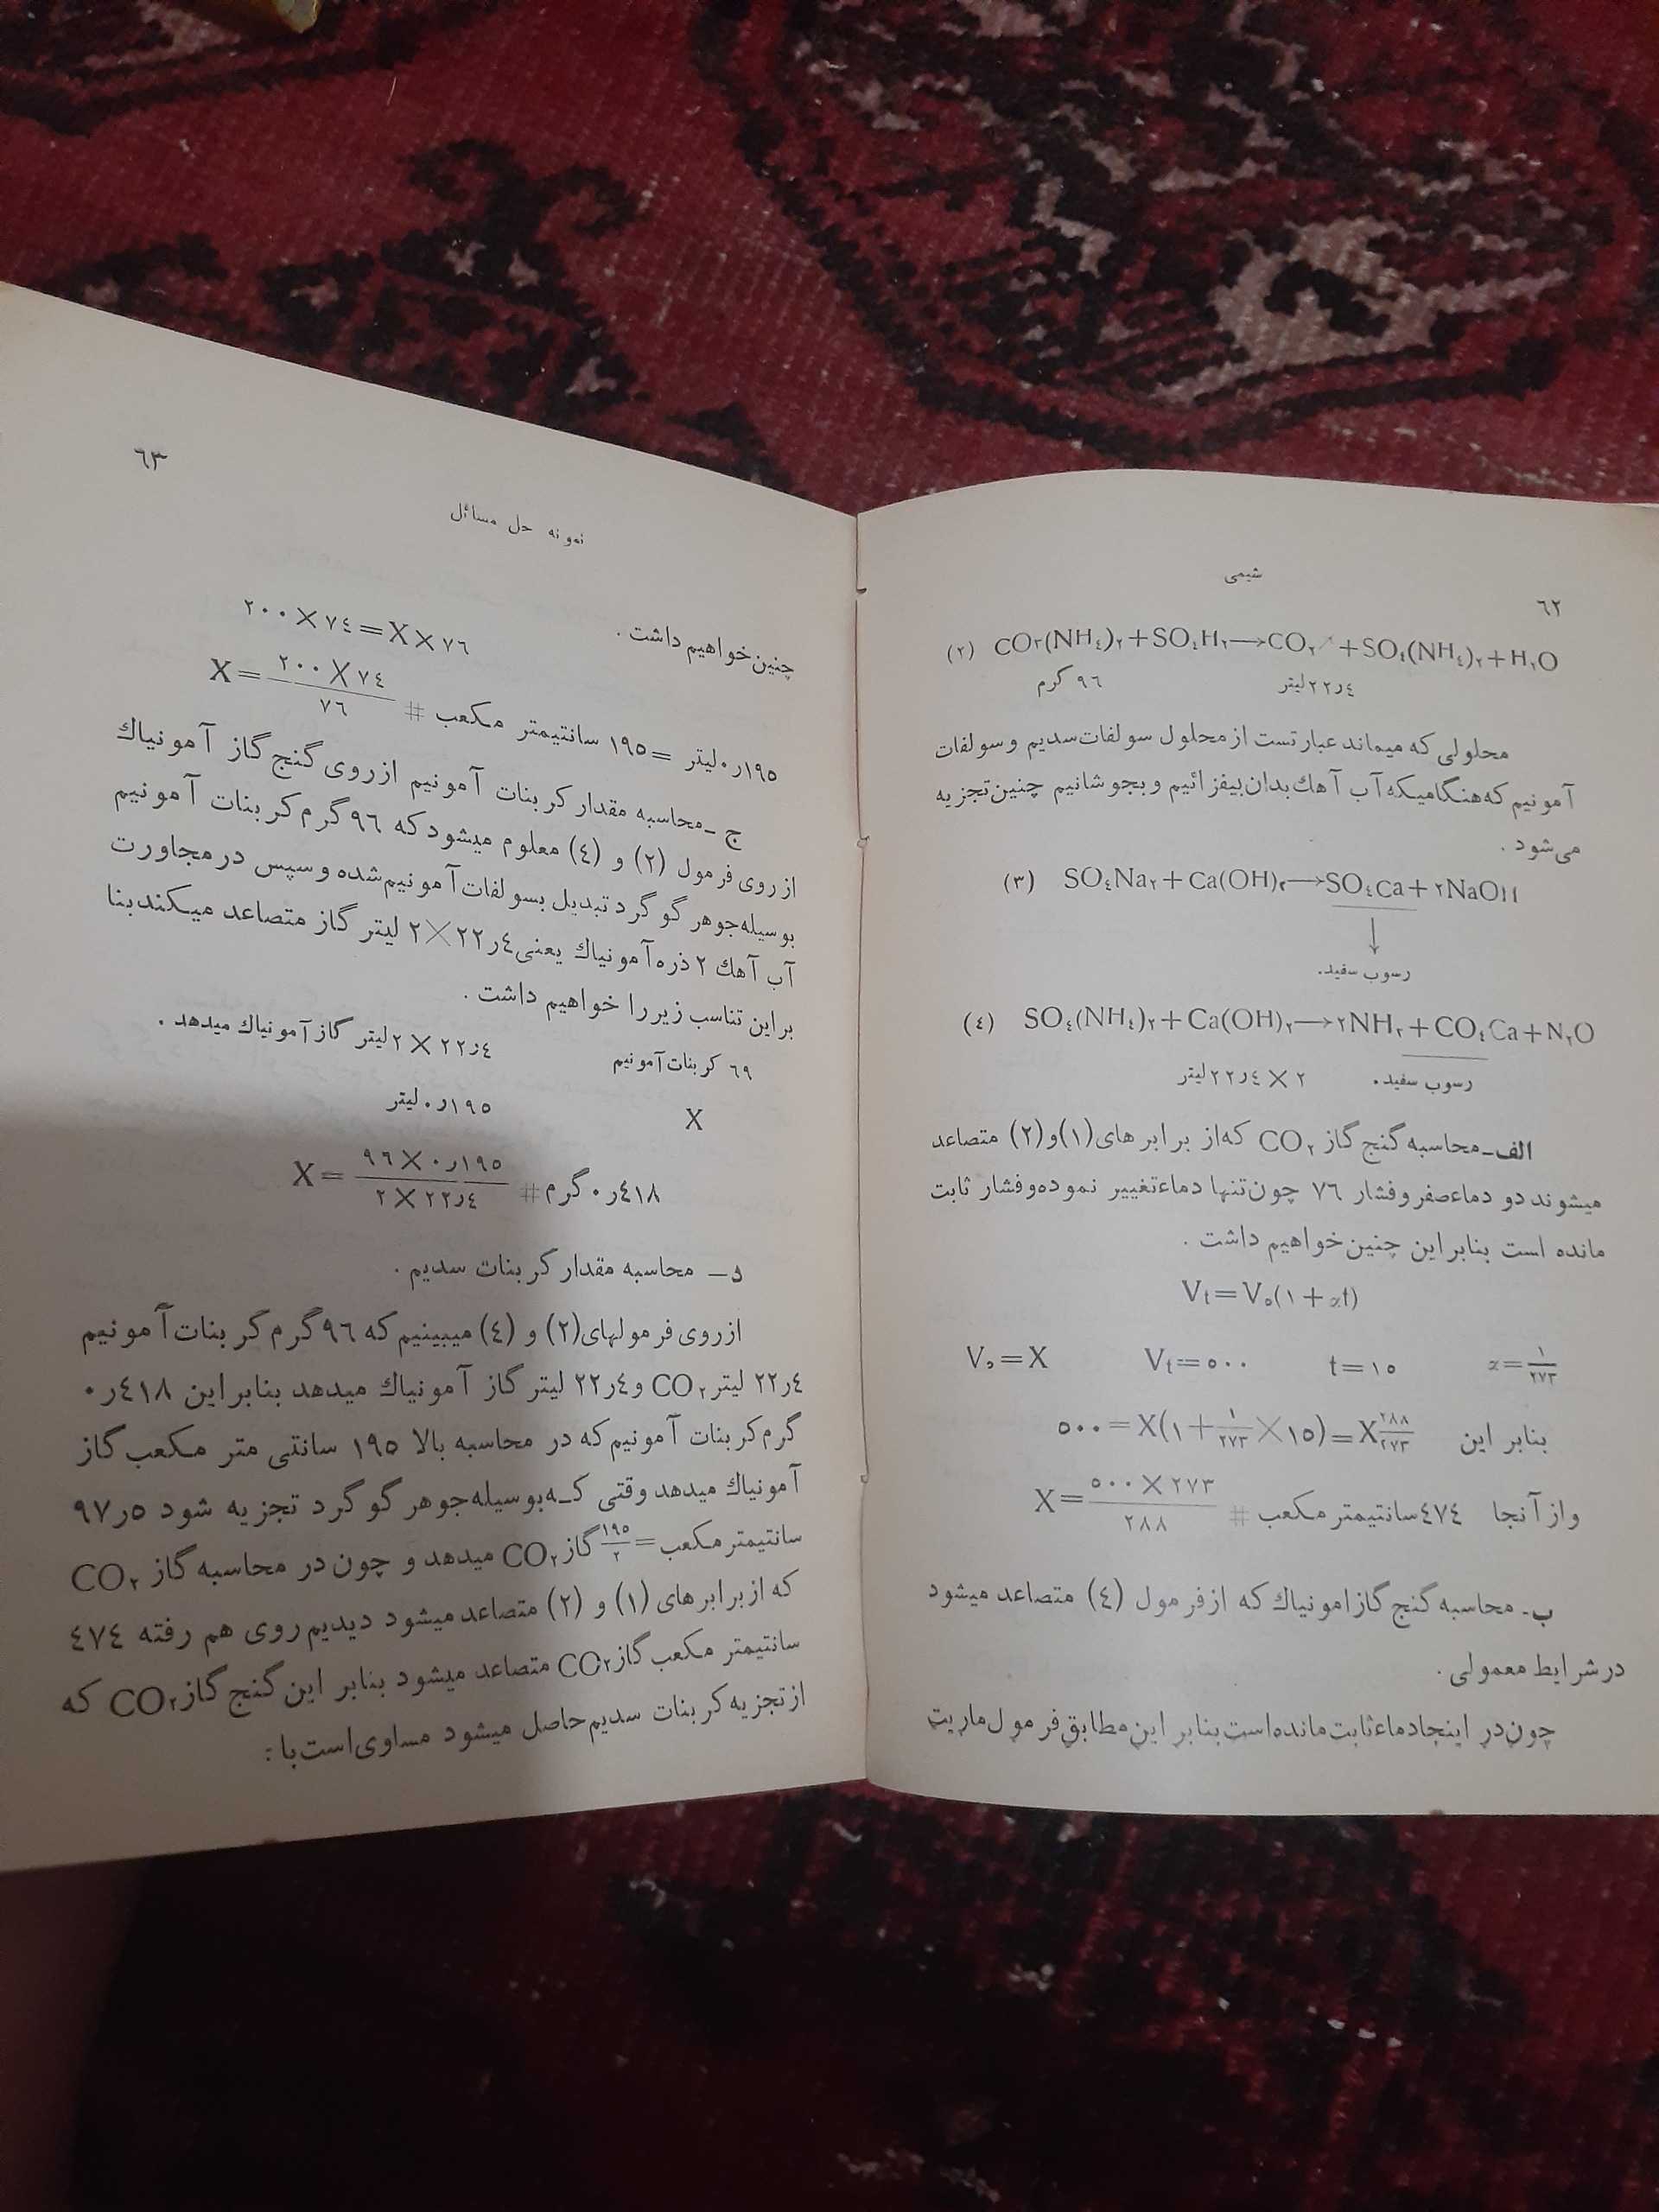 ٦٢
شیمی
(٢) CO٣(NH٤)٢+SO٤H٢⟶CO٢↗+SO٤(NH٤)٢+H٢O
٩٦ گرم ٢٢ر٤ لیتر
محلولی که میماند عبارتست از محلول سولفات‌سدیم و سولفات
آمونیم که هنگامیکه آب آهك بدان بیفزائیم و بجوشانیم چنین تجزیه
می‌شود .
(٣) SO٤Na٢+Ca(OH)٢⟶SO٤Ca+٢NaOH
↓
رسوب سفید.
(٤) SO٤(NH٤)٢+Ca(OH)٢⟶٢NH٣+CO٤Ca+N٢O
٢ × ٢٢ر٤ لیتر رسوب سفید.
الف_محاسبه گنج گاز CO٢ که از برابرهای (١) و (٢) متصاعد
میشوند دو دماء صفر و فشار ٧٦ چون تنها دماء تغییر نموده و فشار ثابت
مانده است بنابر این چنین خواهیم داشت .
Vt=V٥(١+αt)
V٥=X Vt=٥٠٠ t=١٥ α=١/٢٧٣
بنابر این ٥٠٠=X(١+١/٢٧٣×١٥)=X٢٨٨/٢٧٣
و از آنجا ٤٧٤ سانتیمتر مکعب # X=٥٠٠×٢٧٣/٢٨٨
ب_ محاسبه گنج گاز امونیاك که از فرمول (٤) متصاعد میشود
در شرایط معمولی .
چون در اینجا دماء ثابت مانده است بنابر این مطابق فرمول ماریت
٦٣
نمونه حل مسائل
چنین خواهیم داشت . ٢٠٠×٧٤=X×٧٦
٠ر١٩٥ لیتر =١٩٥ سانتیمتر مکعب # X=٢٠٠×٧٤/٧٦
ج _محاسبه مقدار کربنات آمونیم از روی گنج گاز آمونیاك
از روی فرمول (٢) و (٤) معلوم میشود که ٩٦ گرم کربنات آمونیم
بوسیله جوهر گوگرد تبدیل بسولفات آمونیم شده و سپس در مجاورت
آب آهك ٢ ذره آمونیاك یعنی ٢٢ر٤×٢ لیتر گاز متصاعد میکند بنا
بر این تناسب زیر را خواهیم داشت .
٦٩ کربنات آمونیم ٢٢ر٤ × ٢ لیتر گاز آمونیاك میدهد .
X ٠ر١٩٥ لیتر
٠ر٤١٨ گرم # X=٩٦×٠ر١٩٥/٢×٢٢ر٤
د_ محاسبه مقدار کربنات سدیم .
از روی فرمولهای (٢) و (٤) میبینیم که ٩٦ گرم کربنات آمونیم
٢٢ر٤ لیتر CO٢ و ٢٢ر٤ لیتر گاز آمونیاك میدهد بنابر این ٠ر٤١٨
گرم کربنات آمونیم که در محاسبه بالا ١٩٥ سانتی متر مکعب گاز
آمونیاك میدهد وقتی که بوسیله جوهر گوگرد تجزیه شود ٩٧ر٥
سانتیمتر مکعب =١٩٥/٢ گاز CO٢ میدهد و چون در محاسبه گاز CO٢
که از برابرهای (١) و (٢) متصاعد میشود دیدیم روی هم رفته ٤٧٤
سانتیمتر مکعب گاز CO٢ متصاعد میشود بنابر این گنج گاز CO٢ که
از تجزیه کربنات سدیم حاصل میشود مساوی است با :